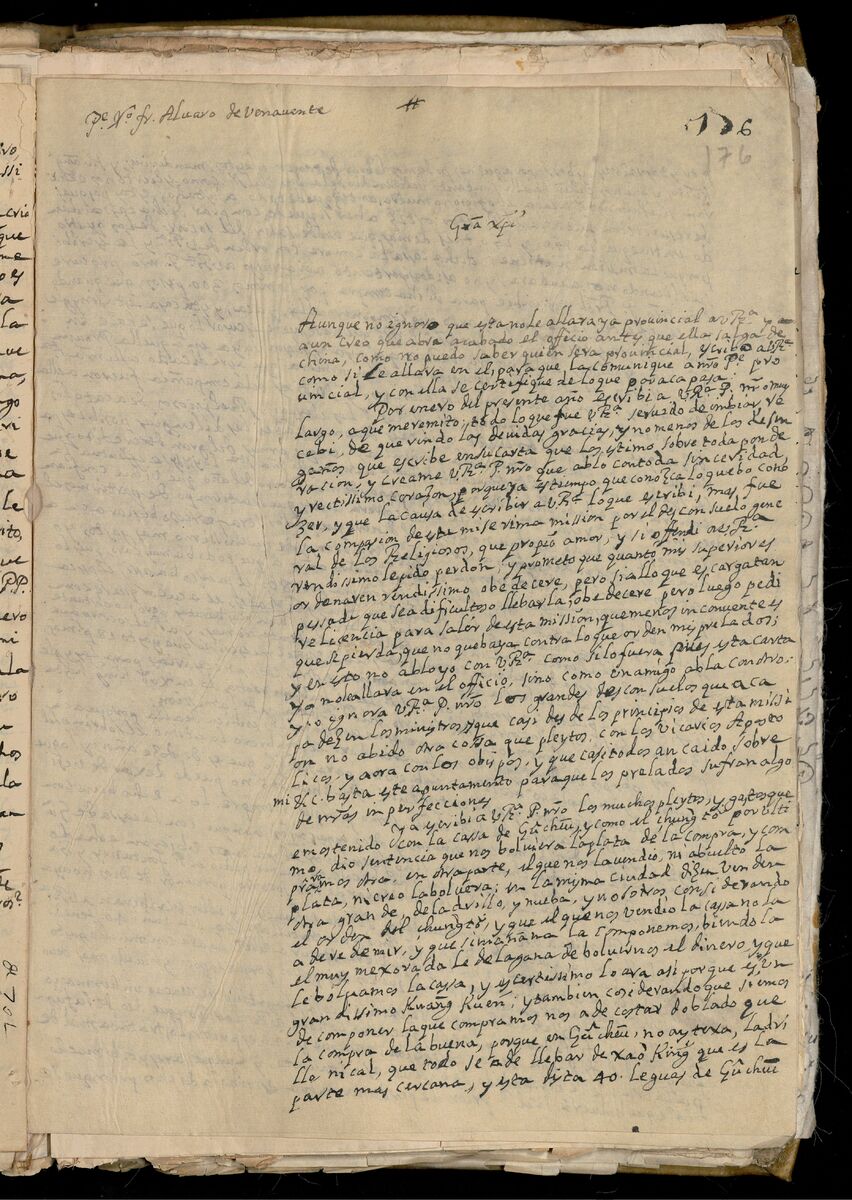 Pe. No. fr. Alvaro de Venavente
#
176
176
Gra. xpi
Aunque no ignoro que esta no le allara ya provincial a VRa. y
aun creo que abra acabado el officio antes que ella salga de
china, como no puedo saber quien sera provincial, escribo a VRa.
como si le allara en el, para que la comunique a nro Pe. pro
vincial, y con ella se certifique de lo que por aca pasa.
Por enero del presente año escribi a VRa. P. nro muy
largo, a que me remito; todo lo que fue VRa. servido de embiar, re
cebi, de que rindo las devidas gracias, y no menos de los desen
gaños que escribe en su carta que los estimo sobre toda ponde
racion, y creame VRa. P. nro que ablo con toda sinceridad,
y rectissimo corazon, porque ya es tiempo que conozca lo que bo cono
zer, y que la causa de escribir a VRa. lo que escribi, mas, fue
la compasion de esta miserrima mission por el desconsuelo gene
ral de los Religiosos, que propio amor, y si offendi a VRa.
rendissimo le pido perdon, y prometo que quanto mis superiores
ordenaren rendissimo obedecere, pero si allo que es carga tan
pesada que sea dificultoso llebarla, obedecere pero luego pedi
re licencia para salir de esta mission, que menos inconveniente es
que se pierda, que no que baya contra lo que orden mis prelados;
y en esto no ablo yo con VRa. como si lo fuera pues esta carta
ya no le allara en el officio, sino como un amigo abla con otro.
y no ignora VRa. P. nro los grandes desconsuelos que aca
padezen los ministros, y que casi desde los principios de esta missi
on no abido otra cossa que pleytos, con los Vicarios Aposto
licos, y aora con los obispos, y que casi todos an caido sobre
mi &c. basta este apuntamento para que los prelados sufran algo
de nras imperfecciones
Ya escribi a VRa. P. nro los muchos pleytos, y gastos que
emos tenido con la cassa de Gûcheū, y como el chungtô por ulti
mo, dio sentencia que nos bolviera la plata de la compra, y com
praramos otra, en otra parte, el que nos la vendio, ni a buelto la
plata, ni creo la bolvera; en la misma ciudad dizen venden
otra grande, de ladrillo, y nueba, y nosotros considerando
el orden del chungtô, y que el que nos vendio la cassa no la
a de redemir, y que si mañana la componemos, biendo la
el muy mexorada le de la gana de bolvernos el dinero, y que
le bolvamos la cassa, y es certissimo lo ara asi porque es un
grandissimo Kuāng Kuen; y tambien considerando que si emos
de componer la que compramos nos a de costar doblado que
la compra de la buena, porque en Gûcheū, no ay texa, ladri
llo ni cal, que todo se a de llebar de xaô Kîng que es la
parte mas cercana, y esta dista 40. leguas de Gûcheū